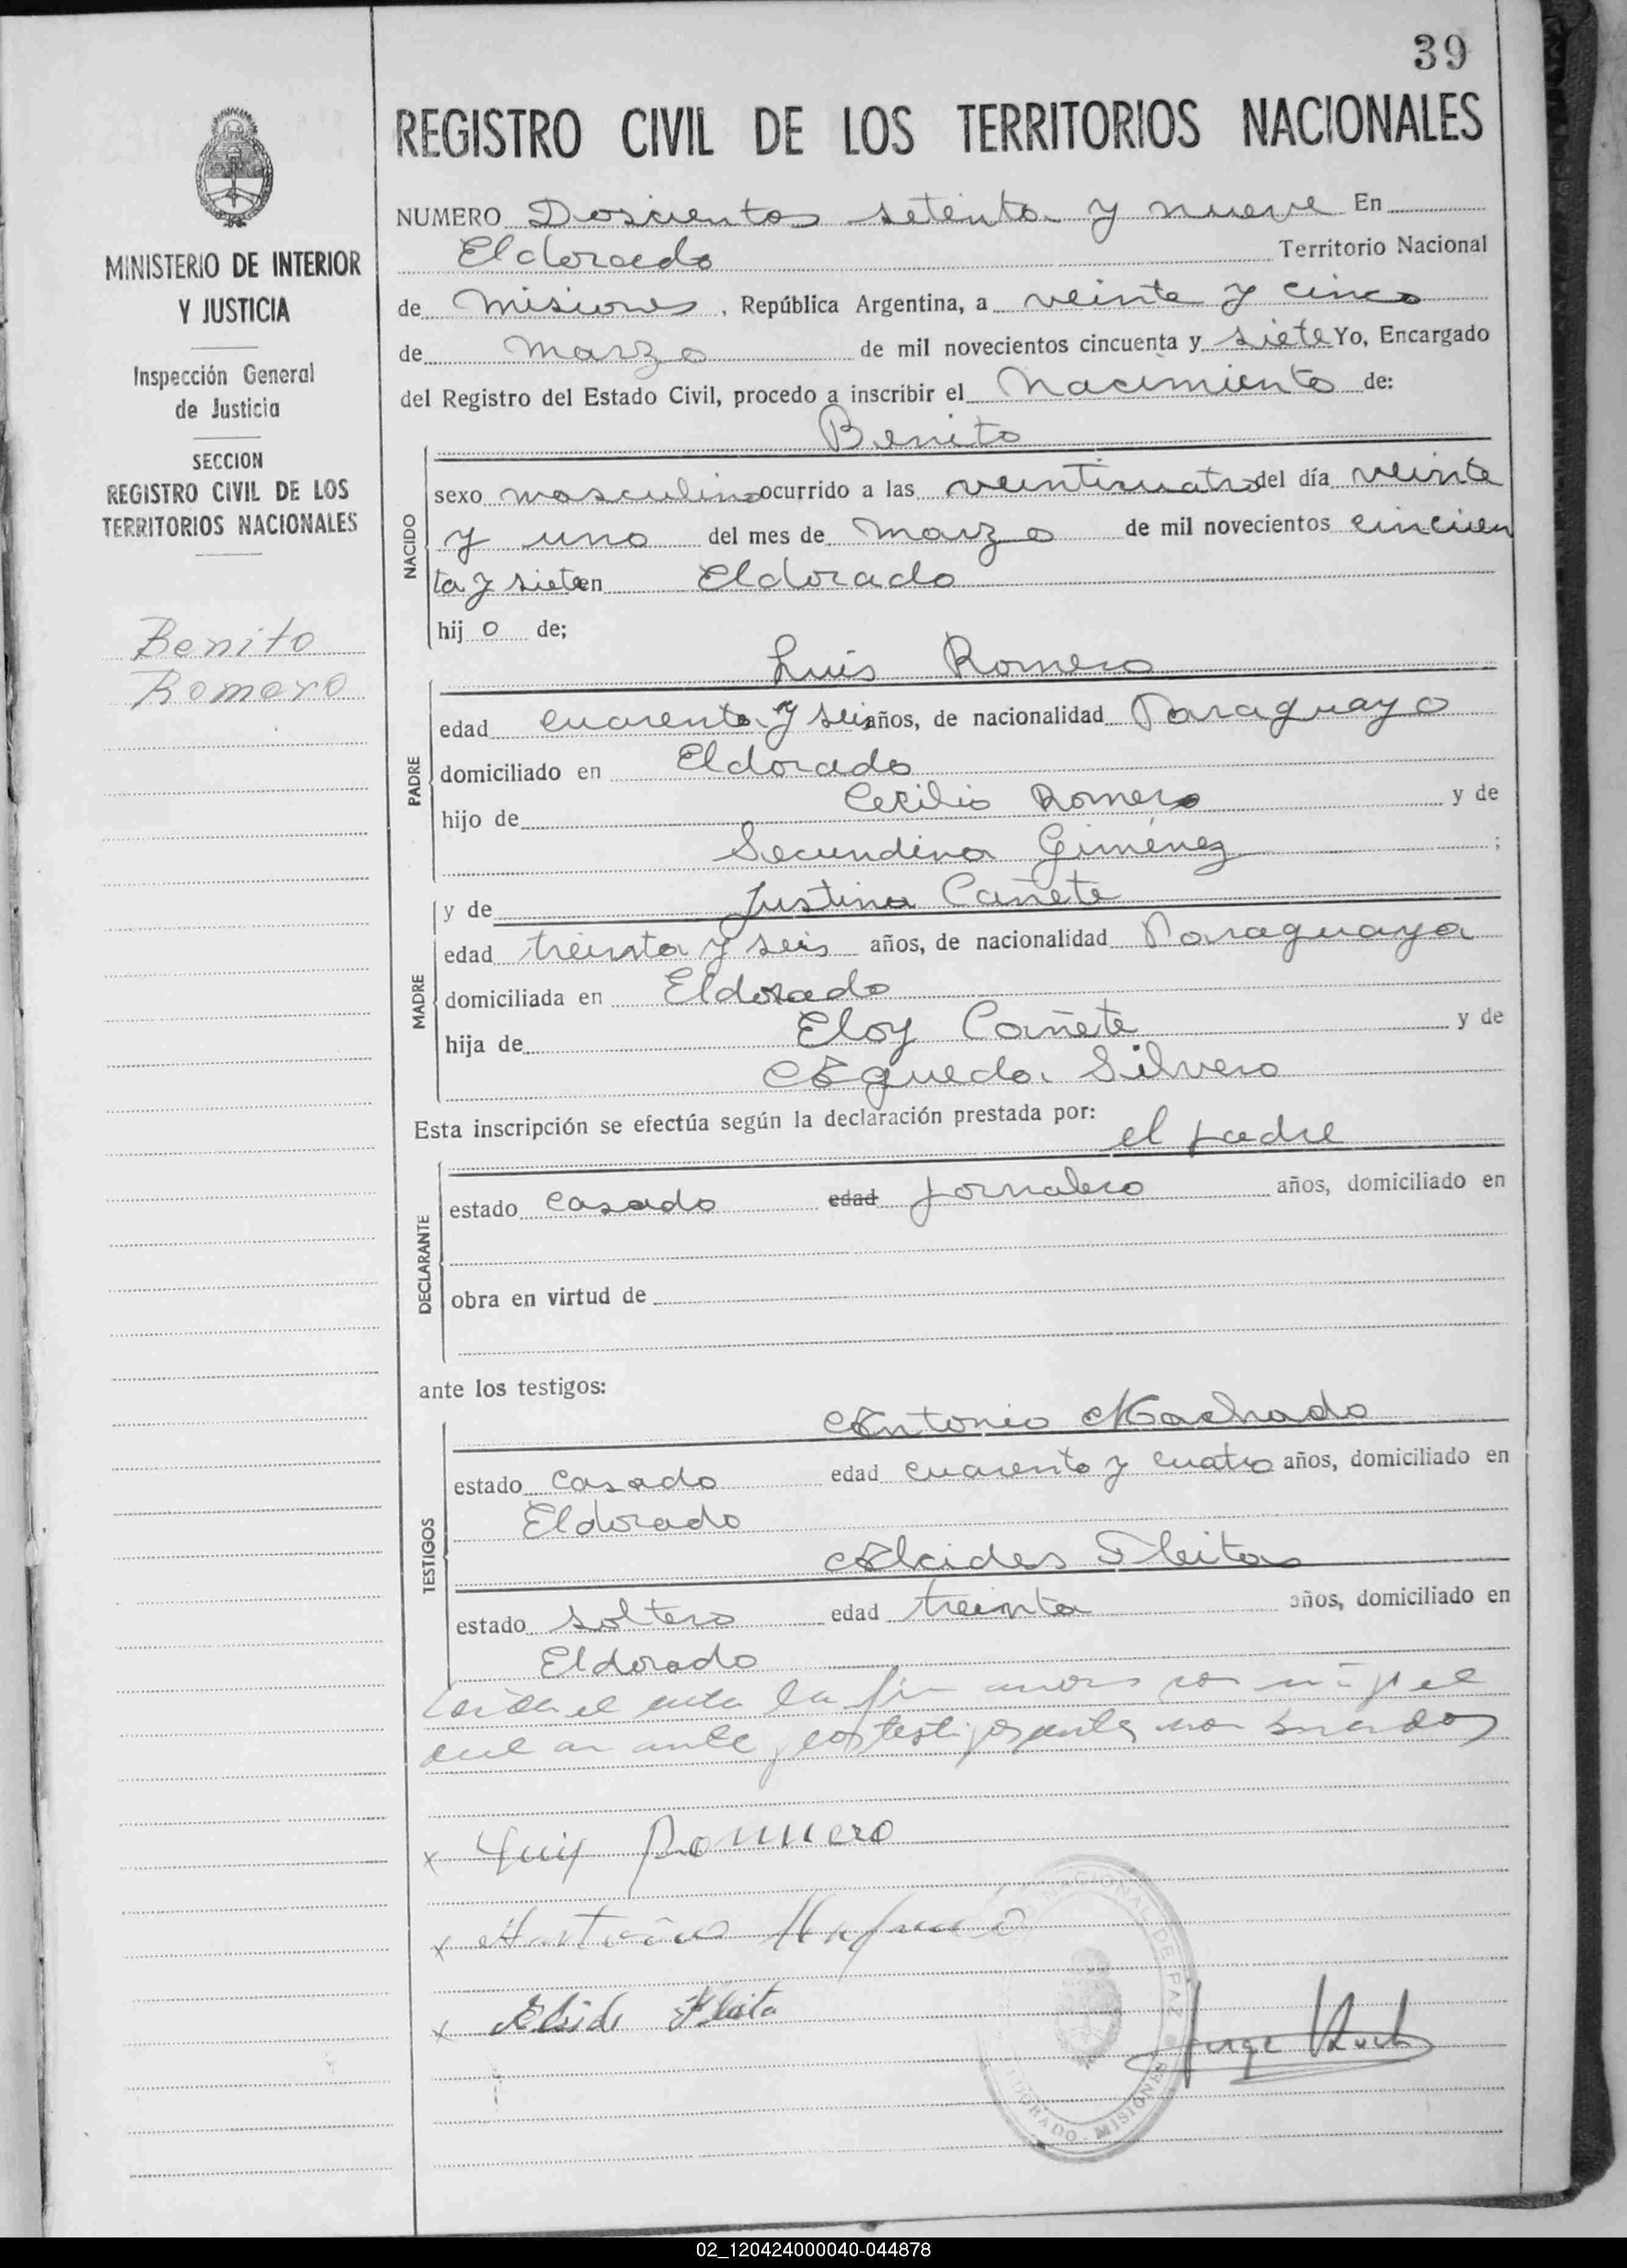 39
REGISTRO CIVIL DE LOS TERRITORIOS NACIONALES
MINISTERIO DE INTERIOR
Y JUSTICIA
Inspección General
de Justicia
SECCION
REGISTRO CIVIL DE LOS
TERRITORIOS NACIONALES
Benito
Romero
NUMERO Doscientos setenta y nueve En
Eldorado Territorio Nacional
de Misiones, República Argentina, a veinte y cinco
de marzo de mil novecientos cincuenta y siete Yo, Encargado
del Registro del Estado Civil, procedo a inscribir el Nacimiento de:
Benito
NACIDO
sexo masculino ocurrido a las veinticuatro del día veinte
y uno del mes de marzo de mil novecientos cincuen
ta y siete en Eldorado
hijo de;
Luis Romero
PADRE
edad cuarenta y seis años, de nacionalidad Paraguayo
domiciliado en Eldorado
hijo de Cecilio Romero y de
Secundina Giménez ;
y de Justina Cañete
MADRE
edad treinta y seis años, de nacionalidad Paraguaya
domiciliada en Eldorado
hija de Eloy Cañete y de
Agueda Silvero
Esta inscripción se efectúa según la declaración prestada por:
el padre
DECLARANTE
estado casado edad jornalero años, domiciliado en
obra en virtud de
ante los testigos:
Antonio Machado
TESTIGOS
estado casado edad cuarenta y cuatro años, domiciliado en
Eldorado
Alcides Fleitas
estado soltero edad treinta años, domiciliado en
Eldorado
el acta la
los testigos antes
x Luis Rommero
x Antonio
x Elside Fleita
NACIONAL DE PAZ
ELDORADO - MISIONES
Jorge
02_120424000040-044878